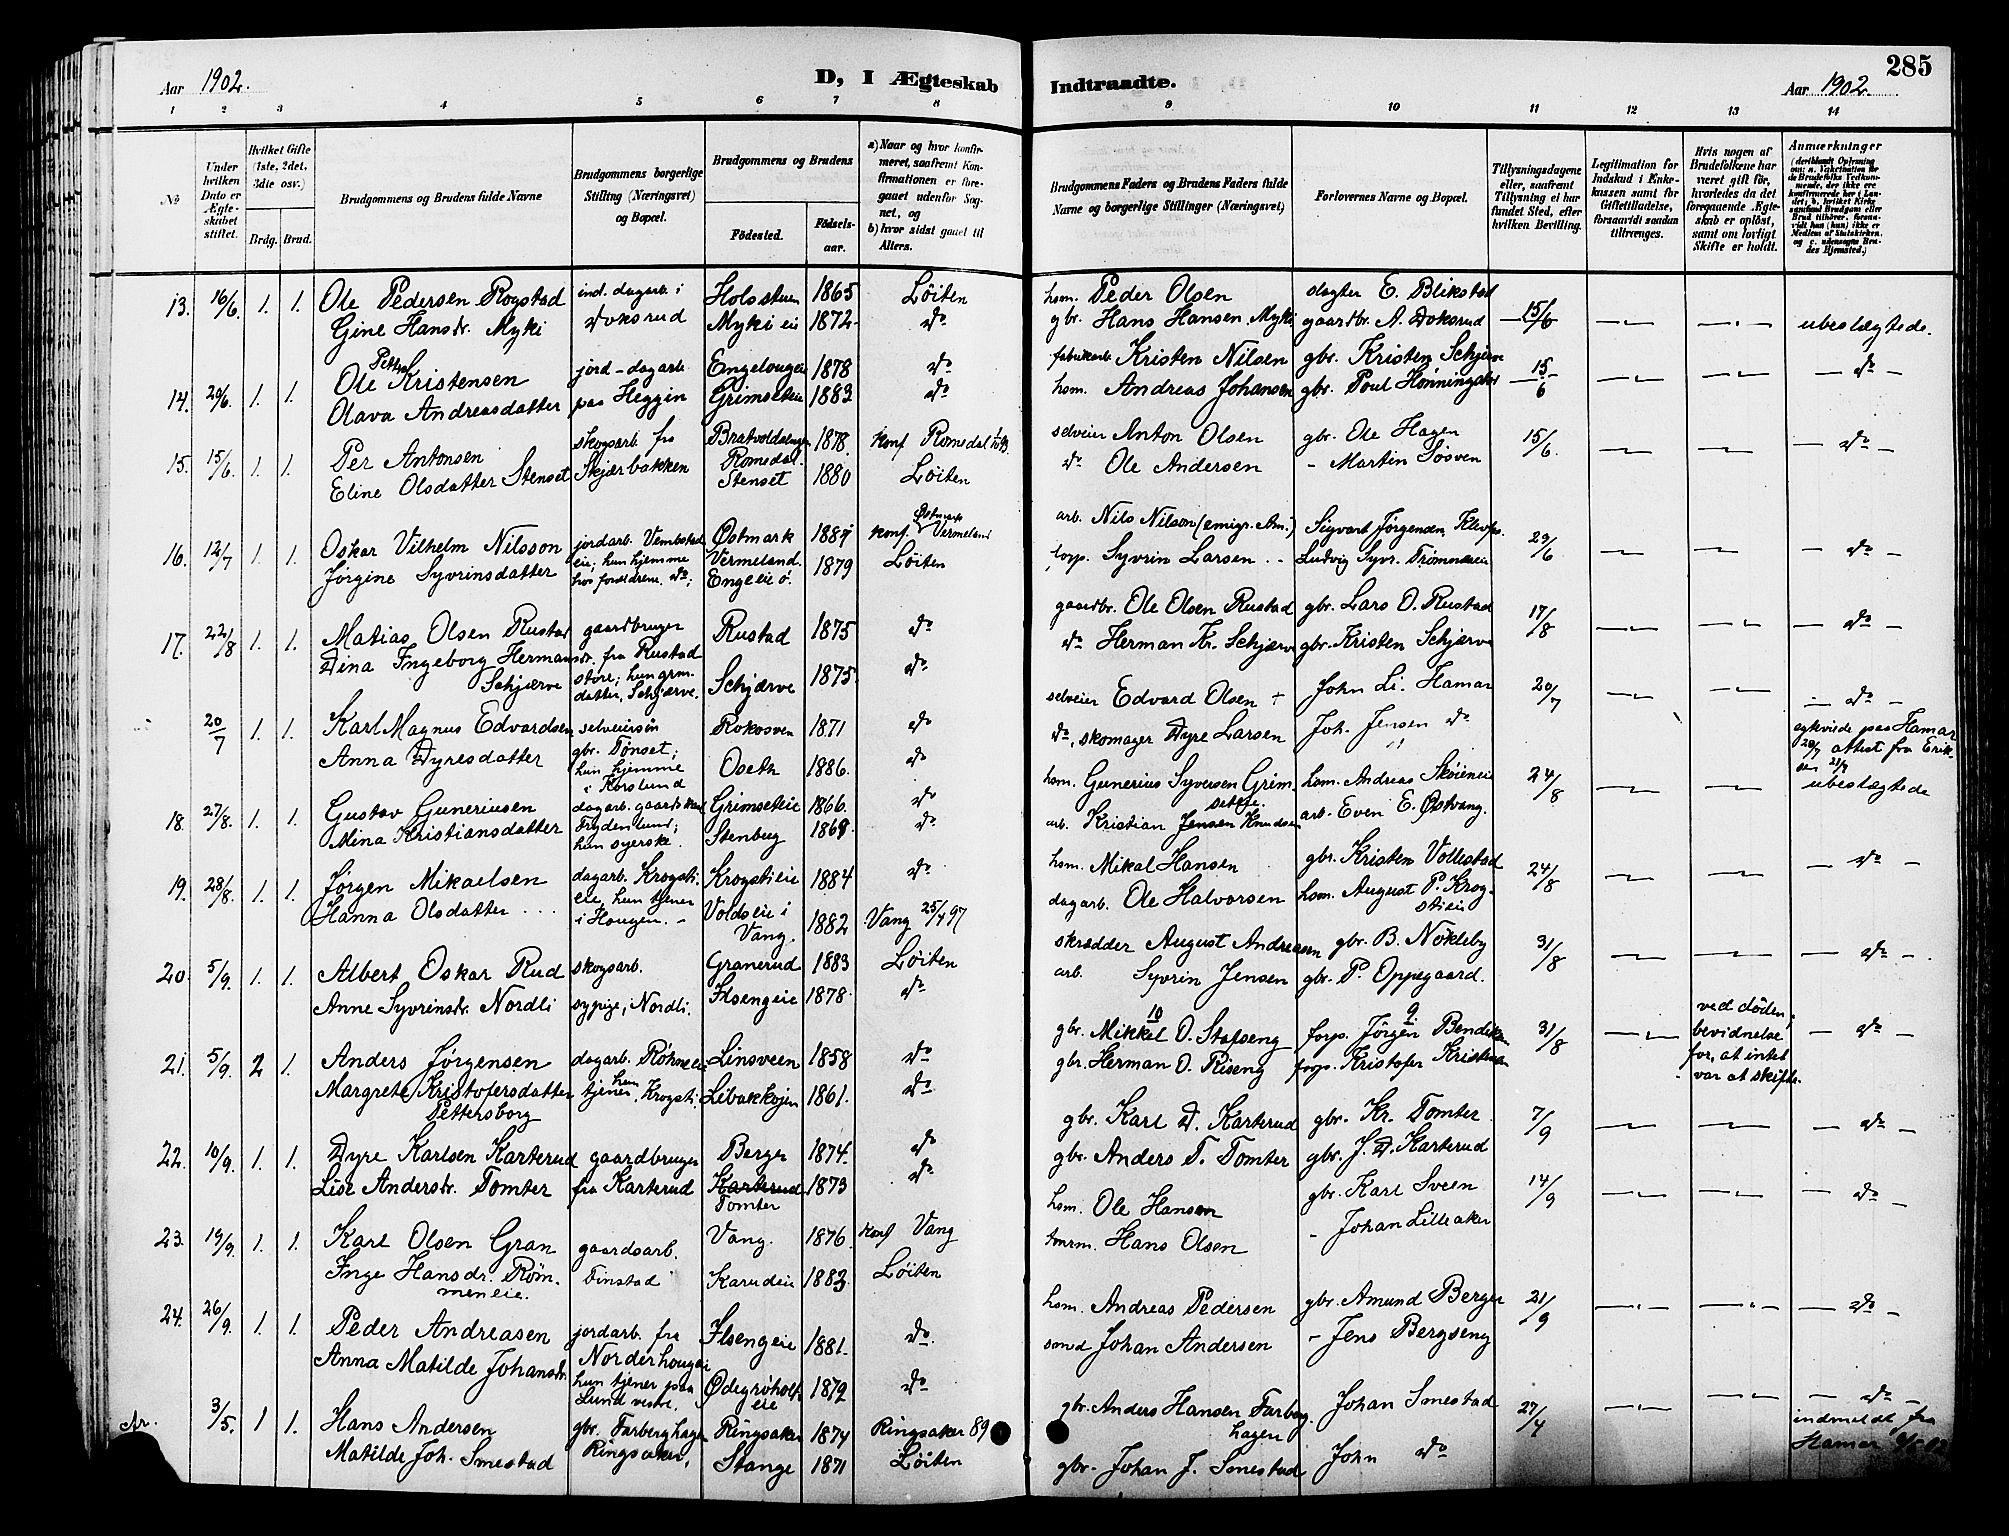 Aar 1902.
D, I Ægteskab
Indtraadte.
285
Aar 1902.
1 2 3 4 5 6 7 8 9 10 11 12 13 14
№
Under hvilken Dato er Ægteskabet stiftet.
Hvilket Gifte (1ste, 2det, 3die osv.)
Brdg. Brud.
Brudgommens og Brudens fulde Navne
Brudgommens borgerlige Stilling (Næringsvei) og Bopæl.
Brudgommens og Brudens
Fødested.
Fødselsaar.
a) Naar og hvor konfirmeret, saafremt Konfirmationen er foregaaet udenfor Sognet, og
b) hvor sidst gaaet til Alters.
Brudgommens Faders og Brudens Faders fulde Navne og borgerlige Stillinger (Næringsvei)
Forlovernes Navne og Bopæl.
Tillysningsdagene eller, saafremt Tillysning ei har fundet Sted, efter hvilken Bevilling.
Legitimation for Indskud i Enkekassen samt for Giftetilladelse, forsaavidt saadan tiltrænges.
Hvis nogen af Brudefolkene har været gift før, hvorledes da det foregaaende Ægteskab er opløst, samt om lovligt Skifte er holdt.
Anmærkninger
13. 16/6. 1. 1. Ole Pedersen Rogstad ind. dagarb. i Holssteen 1865 Løiten hsm. Peder Olsen dagter E. Blikstad
Gine Hansdr. Myki Doksrud Myki eie 1872 do gbr. Hans Hansen Myki gaardbr. A. Doksrud 15/6 ubeslægtede.
14. 20/6. 1. 1. Ole Petter Kristensen jord-dagarb. Engelaugeie 1878 do fabrikarb. Kristen Nilsen gbr. Kristen Schjerve
Olava Andreasdatter paa Heggin Grimseteie 1883 do hsm. Andreas Johansen gbr. Poul Hønningaker 15/6 do
15. 15/6. 1. 1. Per Antonsen skogsarb. fra Romedal. 1878. konf. Romedal selveier Anton Olsen gbr. Ole Hagen
Eline Olsdatter Stenset Skjærbakken Stenset 1880 Løiten do Ole Andersen - Martin Løsven 15/6. do
16. 12/7 1. 1. Oskar Vilhelm Nilsson jordarb. Vembstad eie; hun hjemme Østmark Vermeland. konf. Østmark Vermeland arb. Nils Nilson (emigr. Am.) Sigvart Jørgensen, Klevfos.
Jørgine Syvrinsdatter hos forældrene. do; Engeleie ø. 1879 Løiten forp. Syvrin Larsen Ludvig Syvr. Trømneseie 29/6 do
17. 22/8 1. 1. Matias Olsen Rustad gaardbruger Rustad 1875 do gaardbr. Ole Olsen Rustad gbr. Lars O. Rustad
Dina Ingeborg Hermansdr. Schjærve fra Rustad støre; hun grm. datter, Schjærve. Schjærve 1875. do do Herman Kr. Schjærve gbr. Kristen Schjærve 17/8 do
20/7 1. 1. Karl Magnus Edvardsen selveiersøn Rokosven 1871 do selveier Edvard Olsen + John Li. Hamar
Anna Dyresdatter gbr. Tønset; hun hjemme i Korslund Oseth 1886. do do, skomager Dyre Larsen Joh. Jensen do 20/7 do
ægteviede paa Hamar 20/7 attest fra
18. 27/8. 1. 1. Gustav Guneriusen dagarb. Frydenlund; Grimseteie 1866. do hsm. Gunerius Syversen Grimsetbye. hsm. Andreas Skøieneie
Mina Kristiansdatter hun syerske. Stenberg 1868 do arb. Kristian Jensen Knudsen arb. Even E. Østvang. 24/8 ubeslægtede
19. 28/8. 1. 1. Jørgen Mikaelsen dagarb. Krogstieie, hun tjener Krogstieie 1884 do hsm. Mikal Hansen gbr. Kristen Vollestad
Hanna Olsdatter i Hougen. Voldseie i Vang. 1882 Vang 25/4 97 dagarb. Ole Halvorsen hsm. August P. Krogstieie 24/8 do
20. 5/9. 1. 1. Albert Oskar Rud skogsarb. Granerud 1883 Løiten skrædder August Andreasen gbr. B. Nøkleby
Anne Syvrinsdr. Nordli sypige, Nordli. Ilsengeie 1878. do arb. Syvrin Jensen gbr. P. Oppegaard. 31/8 do
21. 5/9. 2 1. Anders Jørgensen dagarb. Linsveen 1858 do gbr. Mikkel O. Stafseng forp. Jørgen
Margrete Kristofersdatter Pettersborg hun tjener, Krogsti. Libakkøien 1861. do gbr. Herman O. Riseng forp. Kristofer 31/8 ved dødenbevidnelse for, at intet var at skifte. do
22. 10/9. 1. 1. Dyre Karlsen Karterud gaardbruger Berger 1874. do gbr. Karl D. Karterud gbr. Kr. Tomter
Lise Andersdr. Tomter fra Karterud Karterud Tomter 1873 do gbr. Anders T. Tomter gbr. J. D. Karterud 7/9 do
23. 19/9. 1. 1. Karl Olsen Gran gaardsarb. Vang. 1876. konf Vang hsm. Ole Hansen gbr. Karl Sveen
Inge Hansdr. Rømmeneie. Finstad Karudeie 1883. Løiten tmrm. Hans Olsen - Johan Lilleaker 14/9 do
24. 26/9. 1. 1. Peder Andreasen jordarb. fra Norderhougeie Ilsengeie 1881. do hsm. Andreas Pedersen gbr. Amund Berger
Anna Matilde Johansdr. hun tjener paa Lund vestre. Ødegrøholteie 1879 do smed Johan Andersen - Jens Bergseng 21/9 do
3/5. 1 1. Hans Andersen gbr. Farberghagen Ringsaker 1874 Ringsaker 89 gbr. Anders Hansen Farberghagen Johan Smestad
Matilde Joh. Smestad Ringsaker, Stange 1871 Løiten gbr. Johan J. Smestad John do 27/4 do
indmeldt fra Hamar